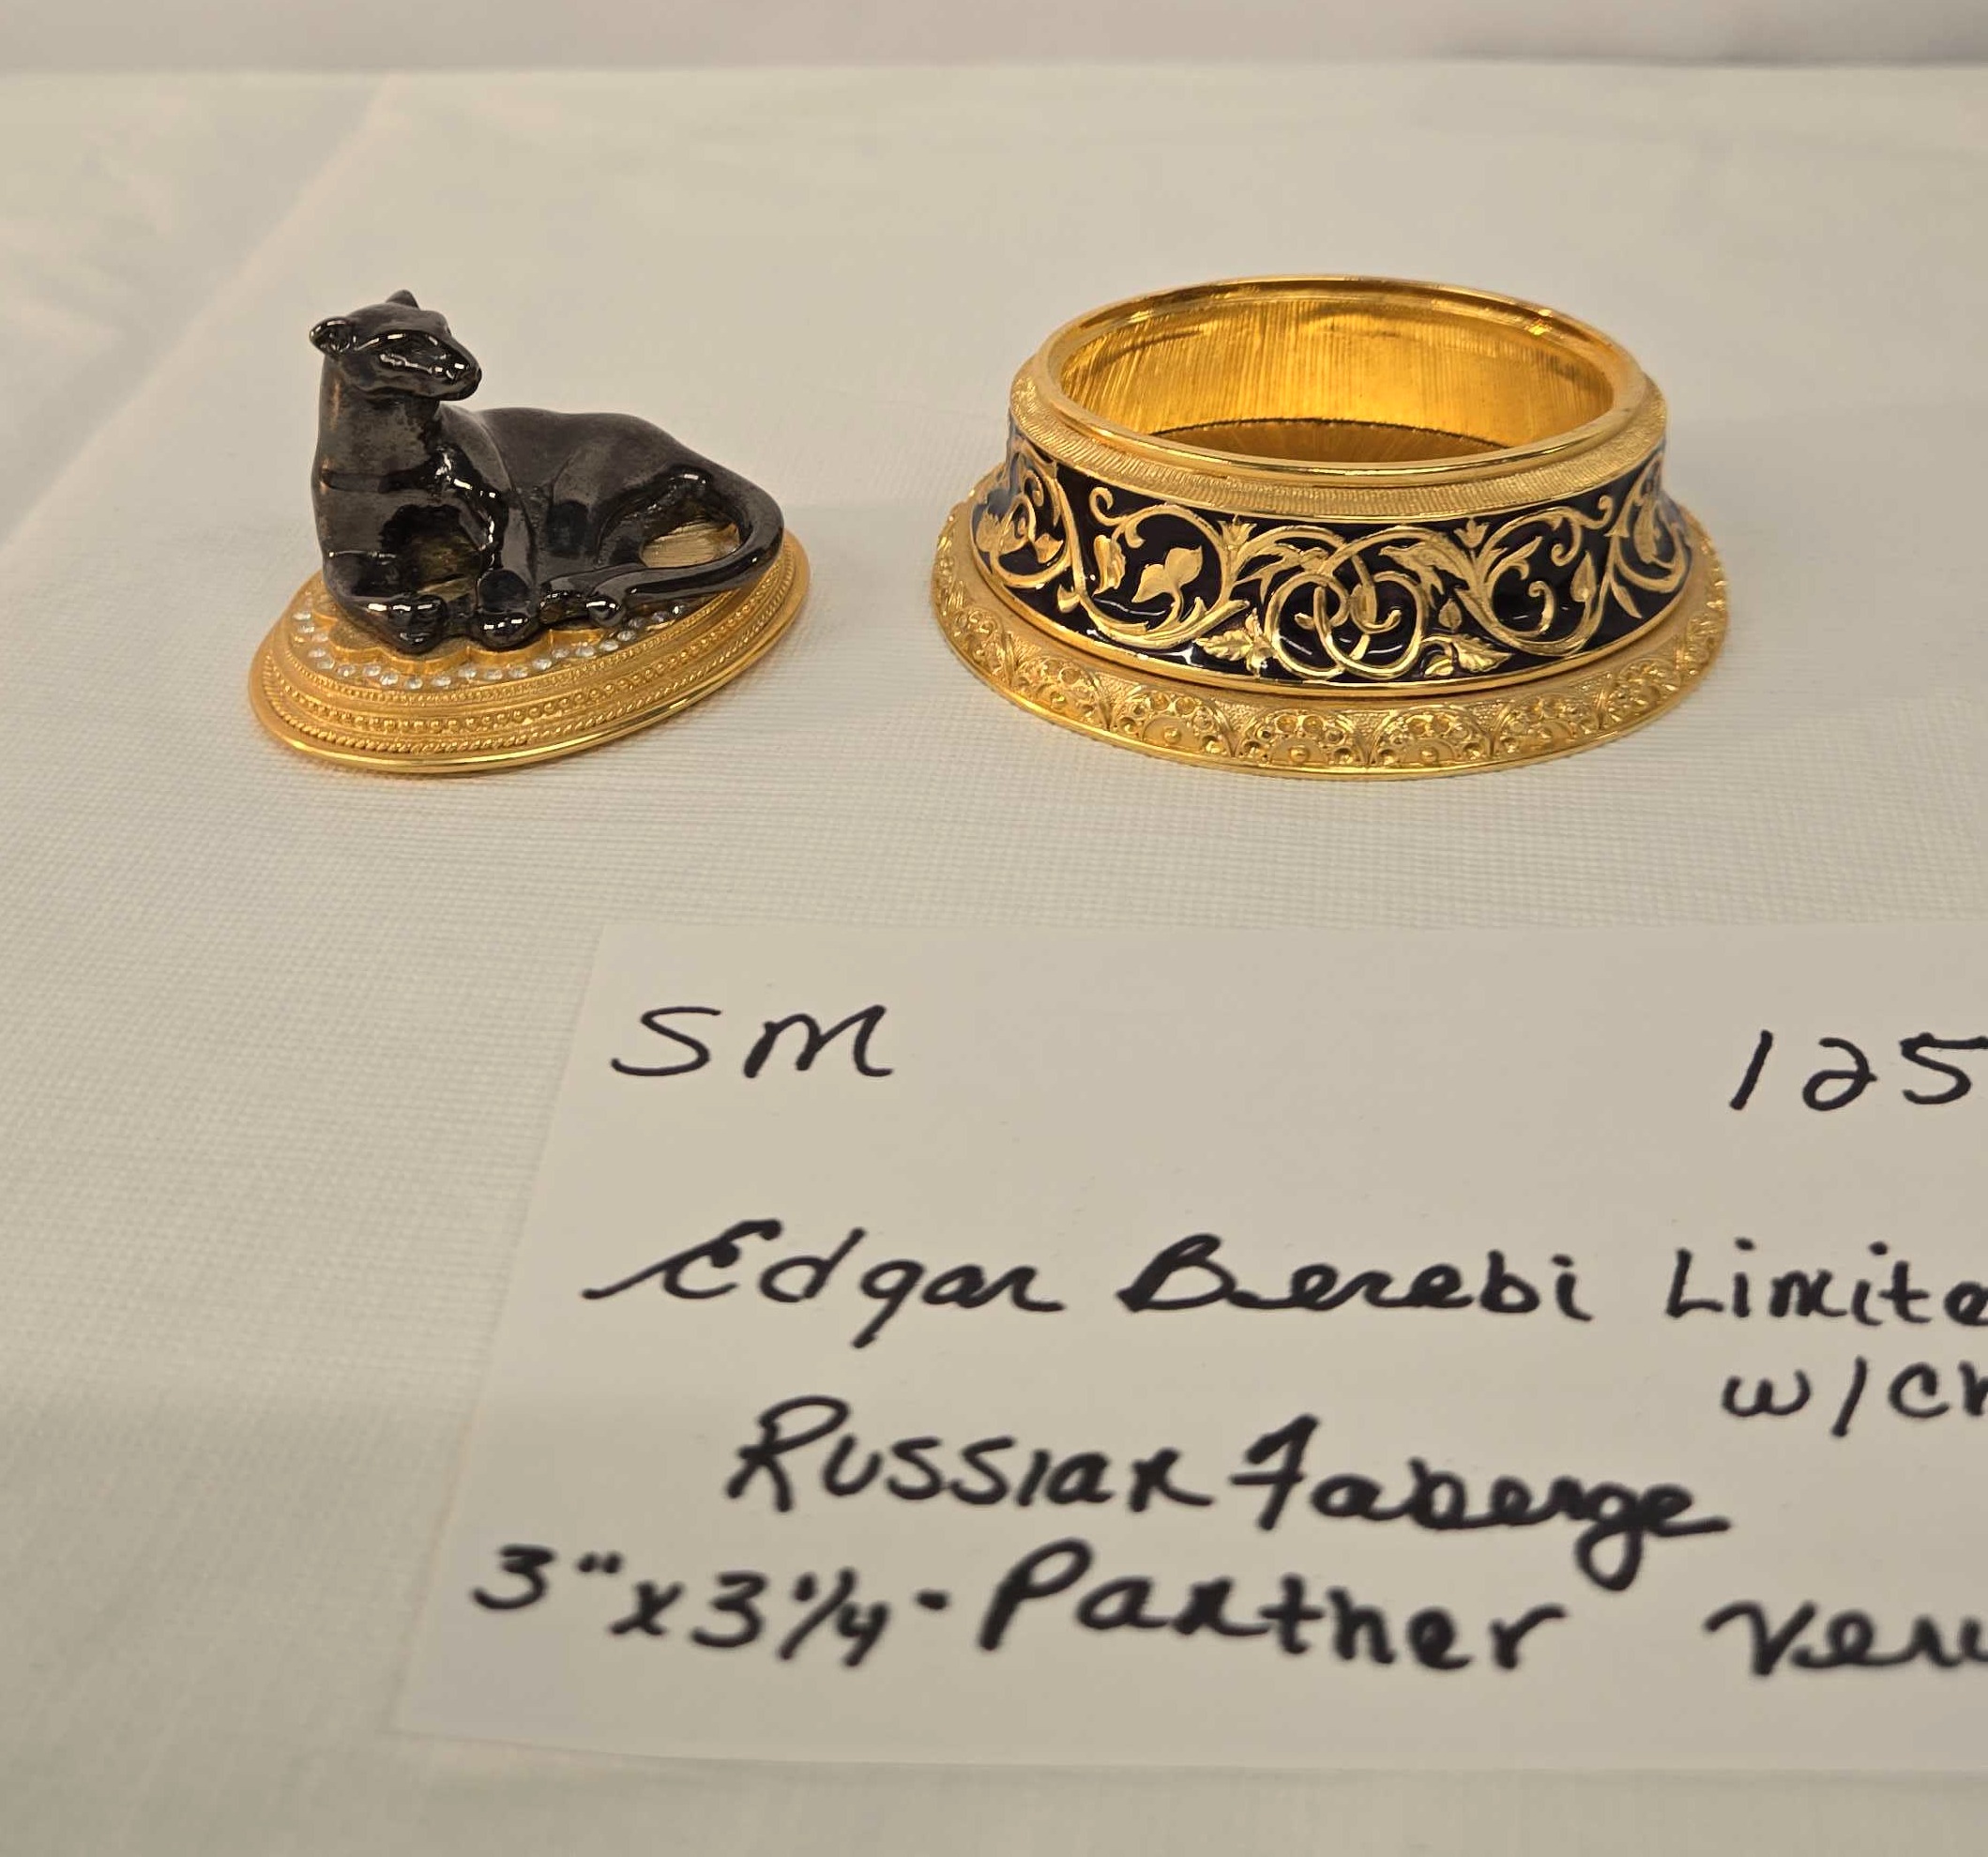 SM 125
Edgar Berebi Limite
w/cr
Russian Faberge
3"x3¼- Panther Ver